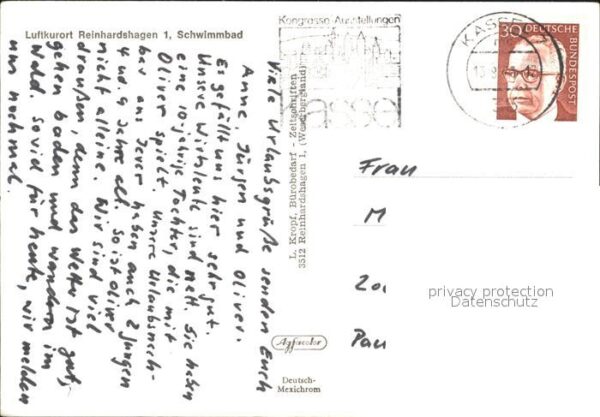 Luftkurort Reinhardshagen 1, Schwimmbad
Viele Urlaubsgrüße senden Euch
Anne, Jürgen und Oliver.
Es gefällt uns hier sehr gut.
Unsere Wirtsleute sind nett. Sie haben
eine 10 jährige Tochter, die mit
Oliver spielt. Unsere Urlaubsnach-
bar aus Jever haben auch 2 Jungen
4 und 9 Jahre alt. So ist Oliver
nicht alleine. Wir sind viel
draußen, denn das Wetter ist gut,
gehen baden und wandern im
Wald. Soviel für heute, wir melden
uns nochmal.
L. Kropf, Bürobedarf - Zeitschriften
3512 Reinhardshagen 1, (Weserbergland)
Agfacolor
Deutsch-
Mexichrom
Kongresse Ausstellungen
Kassel
KASSEL
30
DEUTSCHE
BUNDESPOST
Frau
M
Pau
privacy protection
Datenschutz